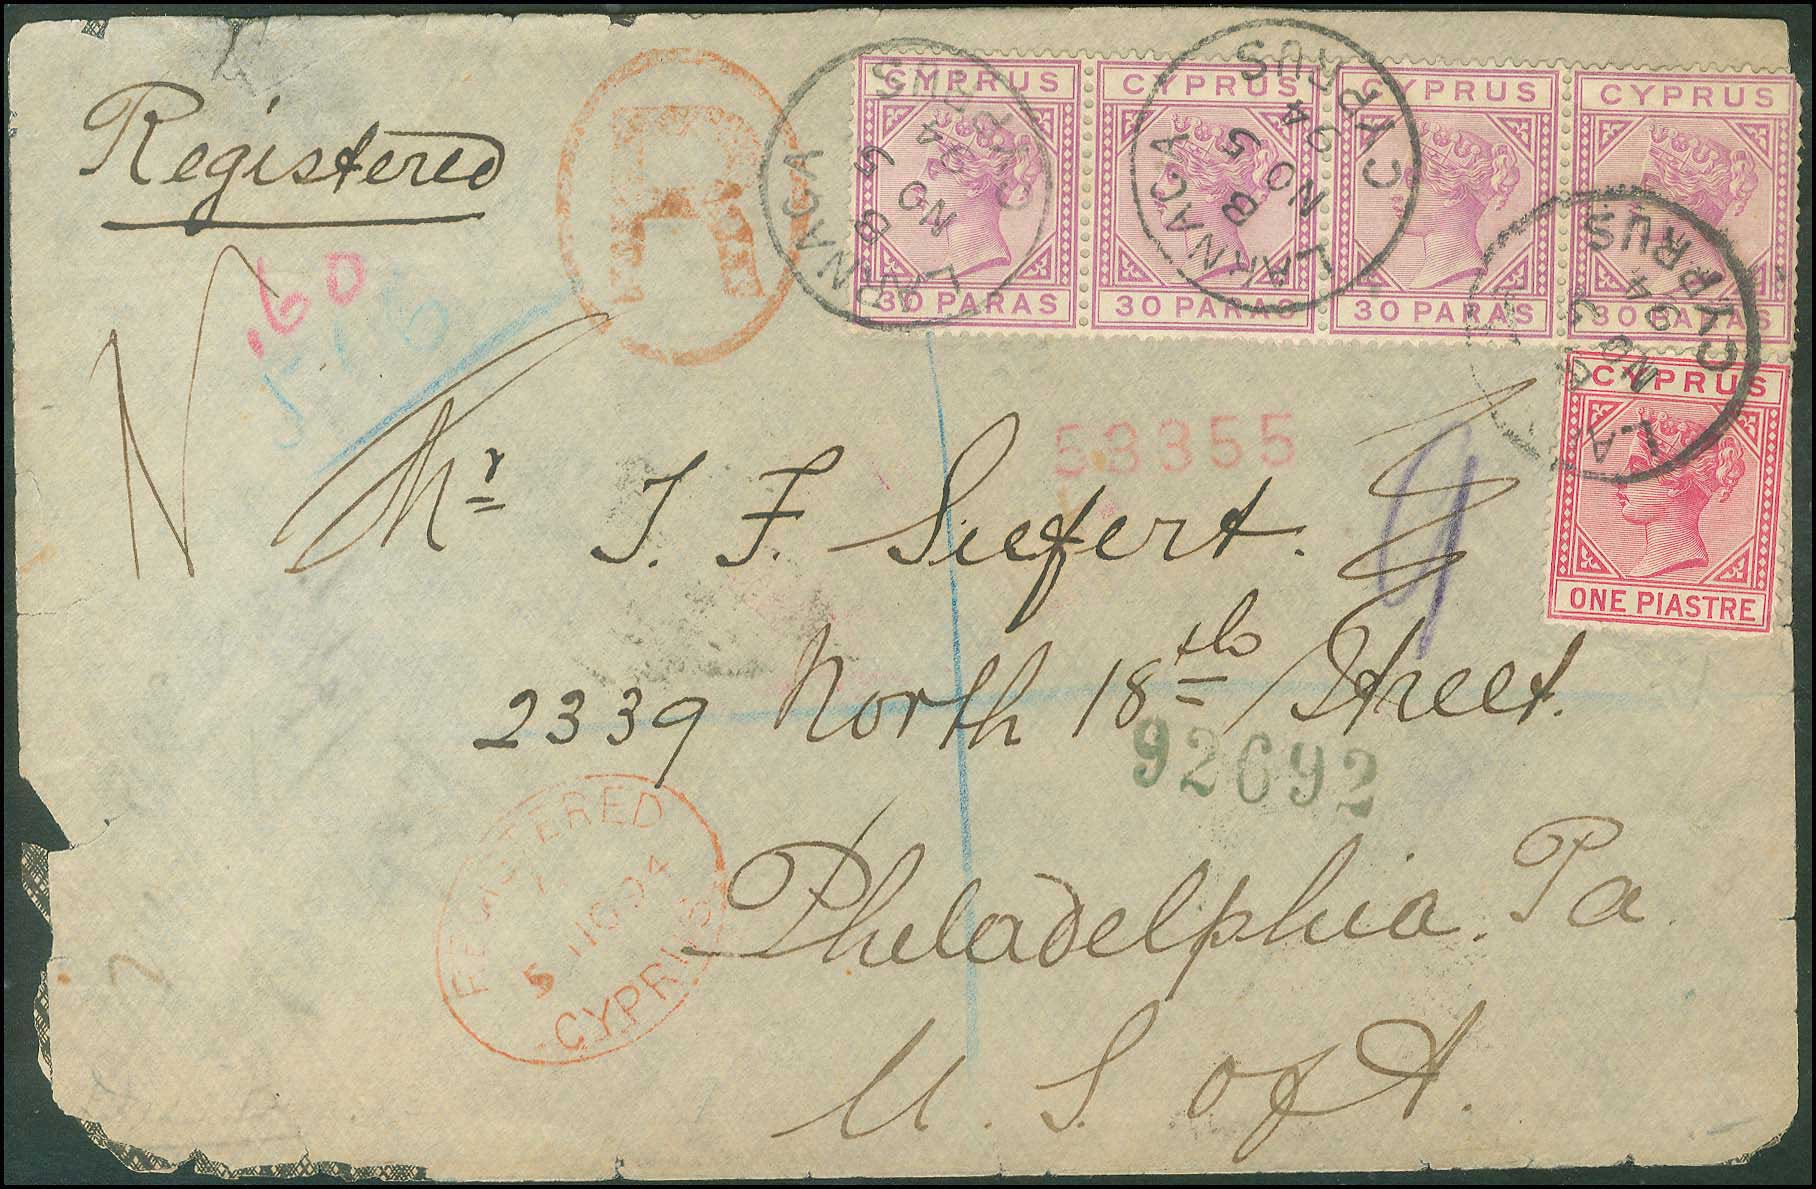 Registered
R
CYPRUS CYPRUS CYPRUS CYPRUS
30 PARAS 30 PARAS 30 PARAS 30 PARAS
LARNACA
B
NO 5
94
CYPRUS
LARNACA
B
NO 5
94
CYPRUS
94
CYPRUS
CYPRUS
ONE PIASTRE
.60
N
53355
9
Mr J. F. Siefert.
2339 North 18th Street.
92692
Philadelphia. Pa
U. S. of A.
REGISTERED
5 NO 94
CYPRUS